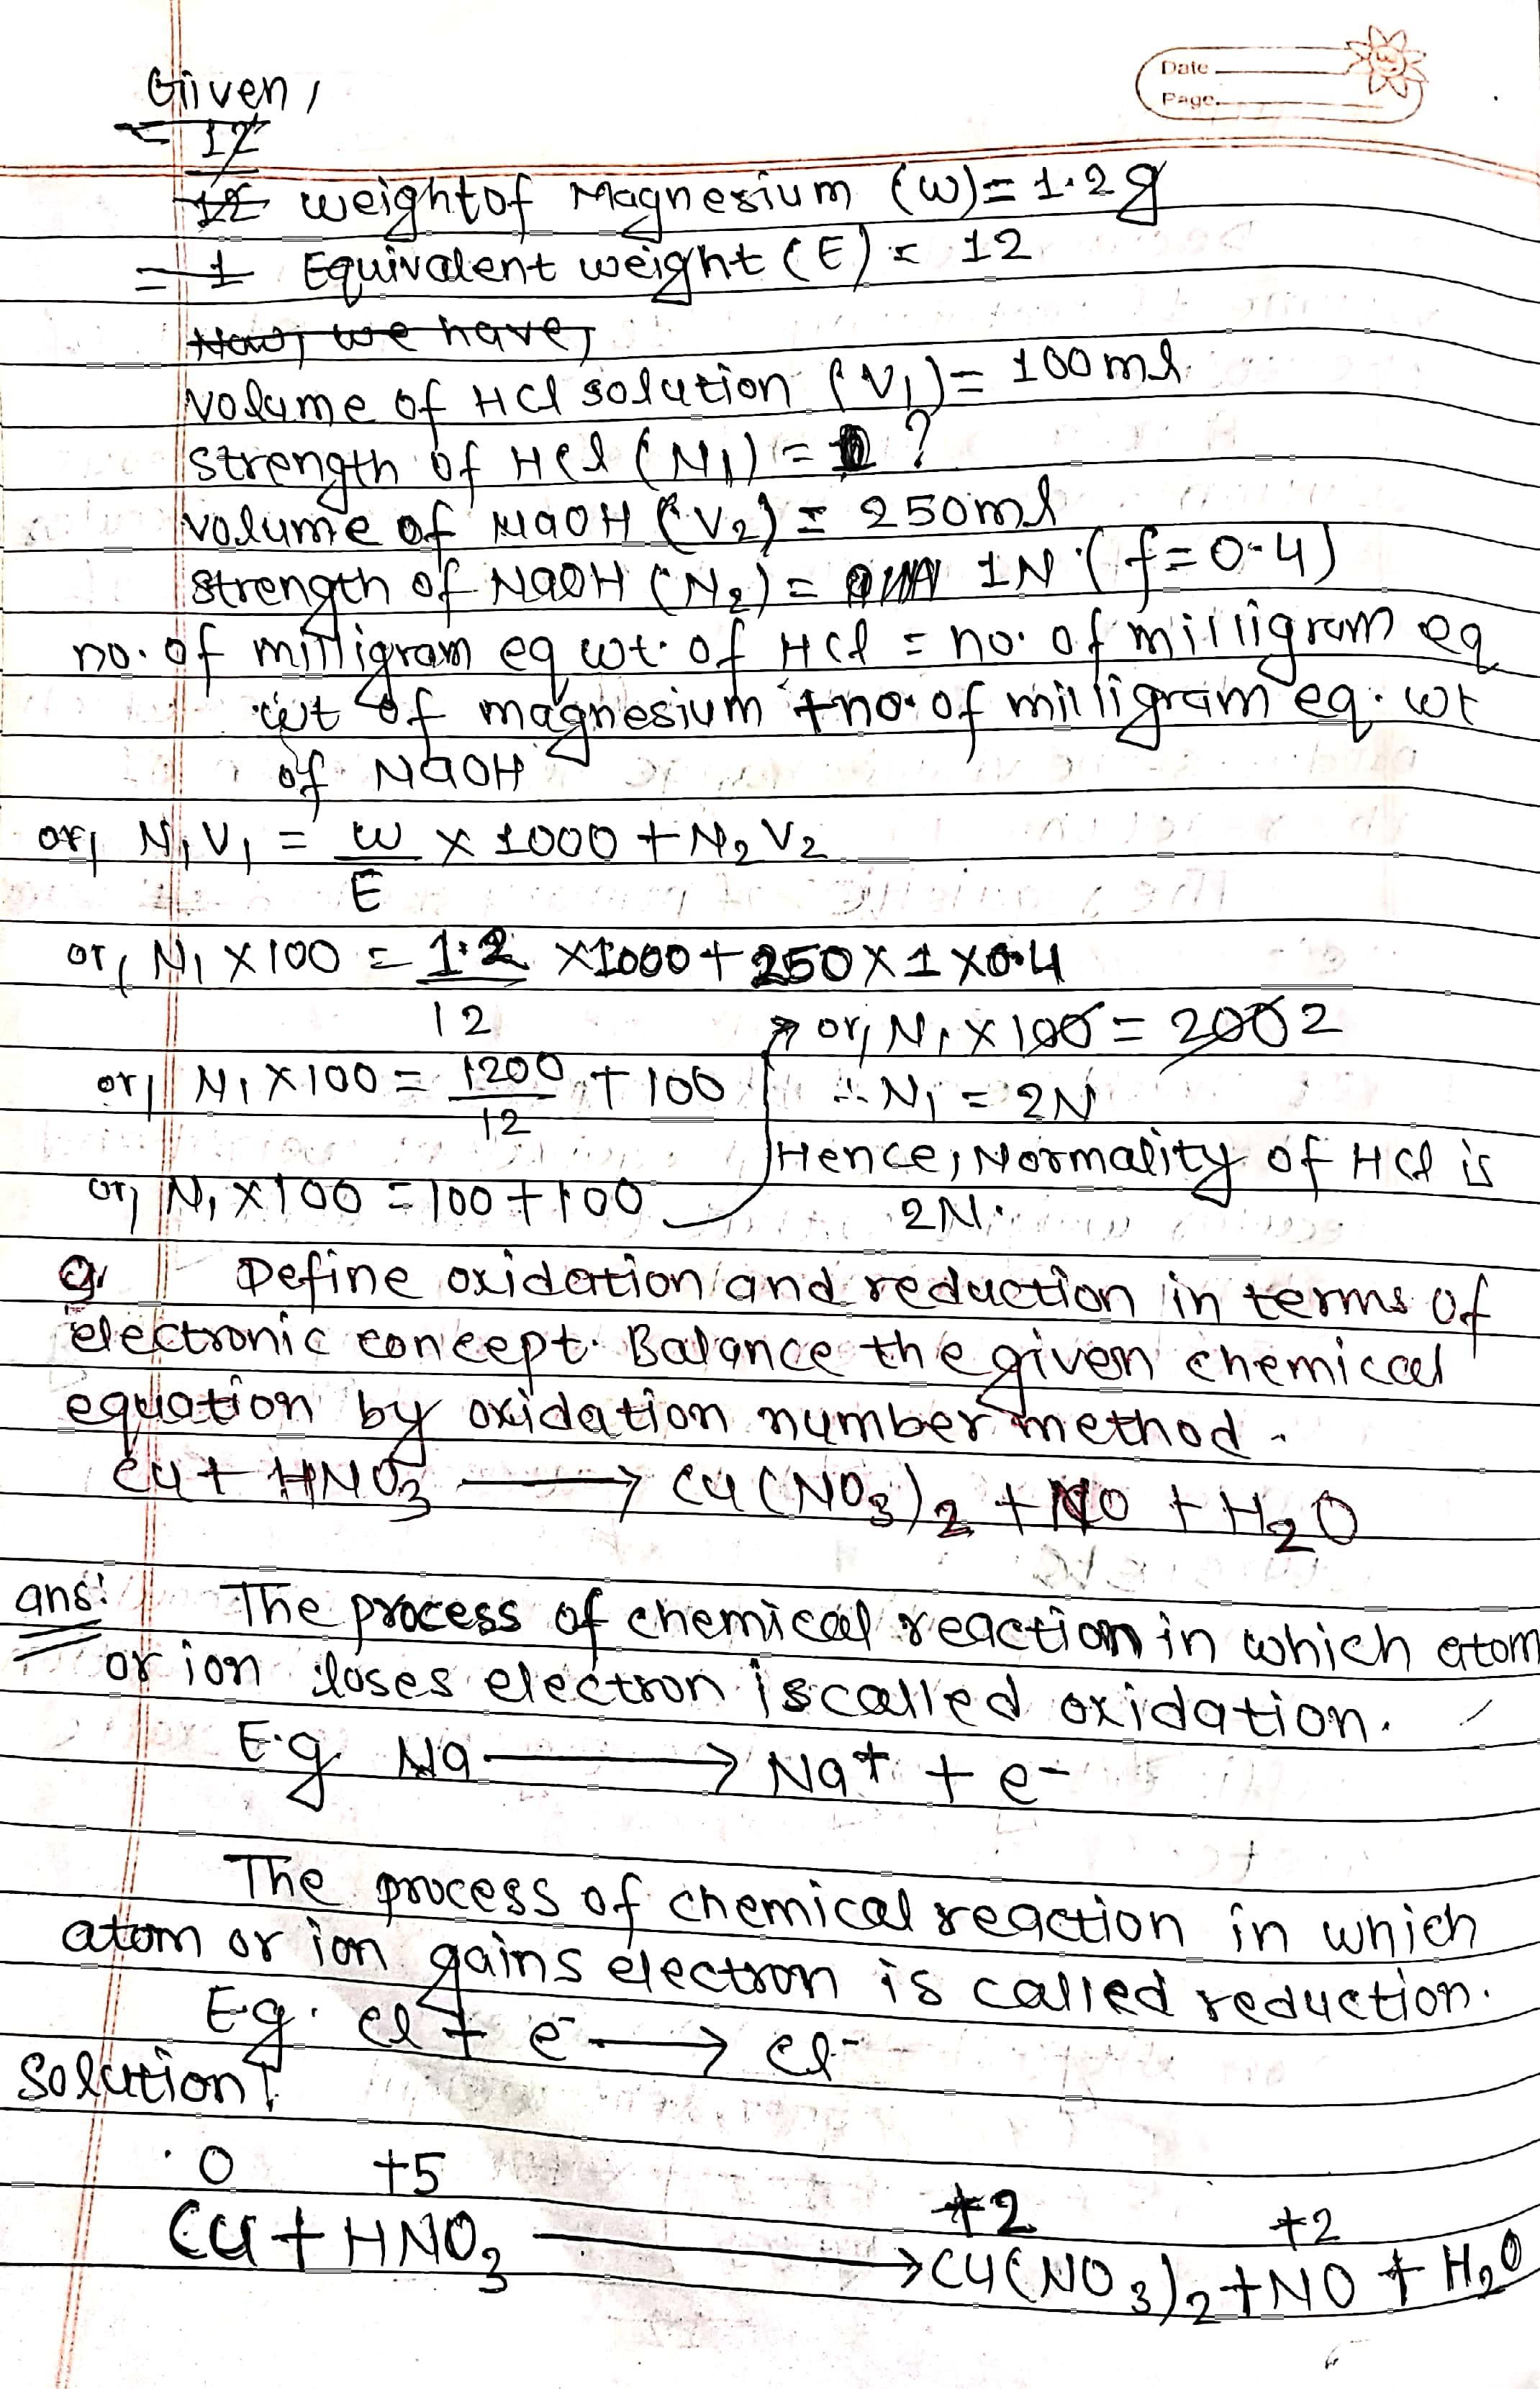 Date
Page
Given,
= 12
12 weight of Magnesium (w) = 1.2 g
= 1 Equivalent weight (E) = 12
Now, we have,
volume of HCl solution (V₁) = 100 ml
strength of HCl (N₁) = ?
volume of NaOH (V₂) = 250ml
strength of NaOH (N₂) = 1N (f=0.4)
no. of milligram eq wt. of HCl = no. of milligram eq
wt of magnesium + no. of milligram eq. wt
of NaOH
or, N₁V₁ = w/E × 1000 + N₂V₂
or, N₁ × 100 = 1.2/12 × 1000 + 250 × 1 × 0.4
or, N₁ × 100 = 1200/12 + 100
or, N₁ × 100 = 100 + 100
or, N₁ × 100 = 200 2
∴ N₁ = 2N
Hence, Normality of HCl is
2N.
Q. Define oxidation and reduction in terms of
electronic concept. Balance the given chemical
equation by oxidation number method.
Cu + HNO₃ → Cu(NO₃)₂ + NO + H₂O
ans: The process of chemical reaction in which atom
or ion loses electron is called oxidation.
E.g. Na → Na⁺ + e⁻
The process of chemical reaction in which
atom or ion gains electron is called reduction.
E.g. Cl + e⁻ → Cl⁻
Solution:
0 +5 +2 +2
Cu + HNO₃ → Cu(NO₃)₂ + NO + H₂O